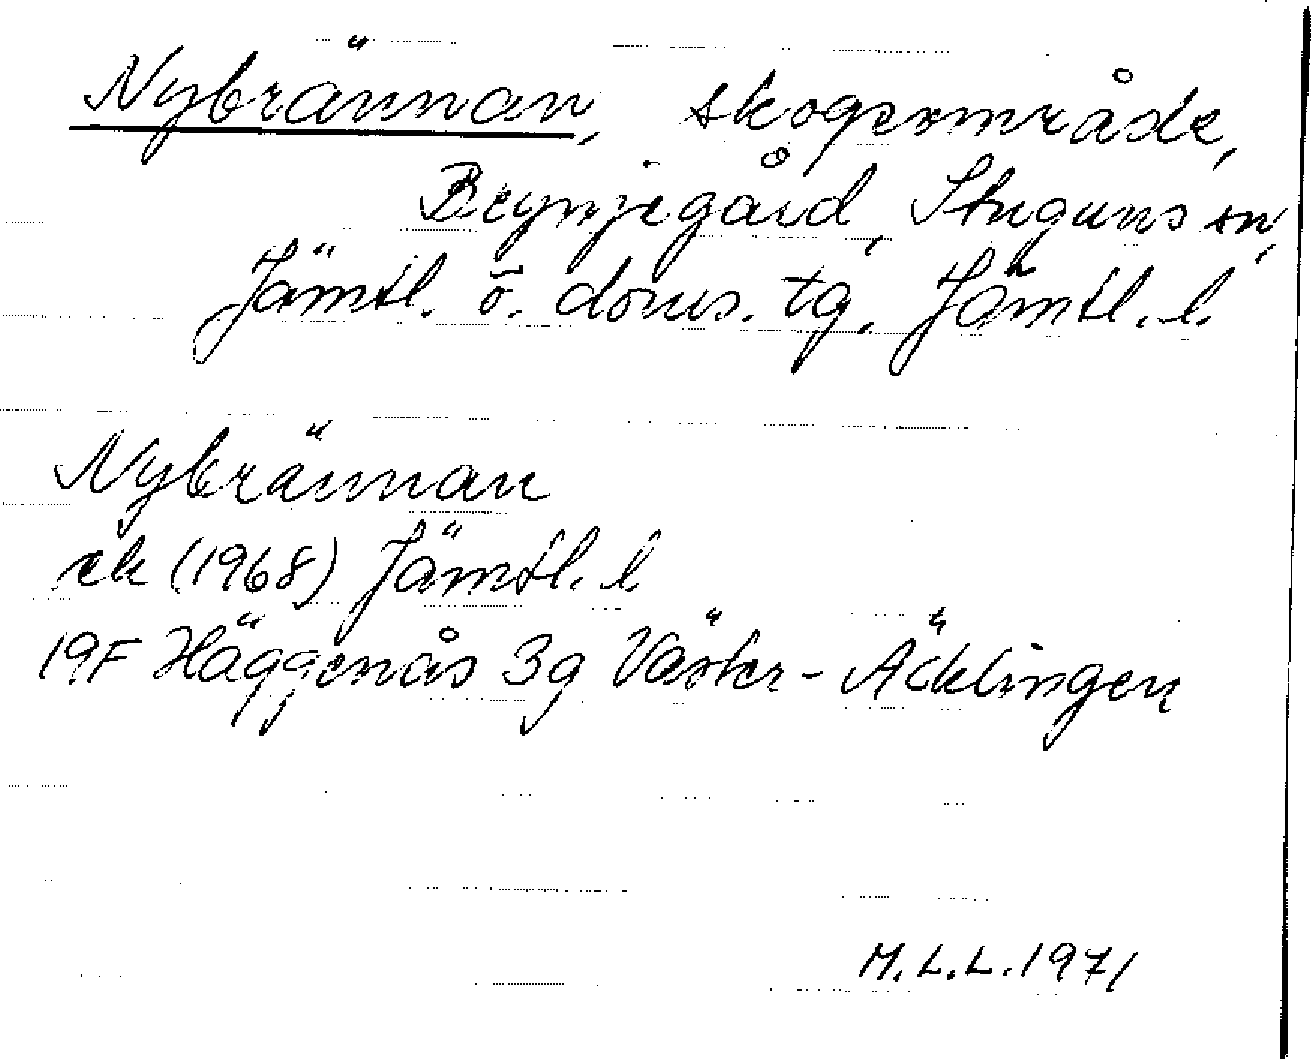 Nybrännan, skogsområde,
Brynjegård, Stuguns sn,
Jämtl. ö. doms. tg. Jämtl. l.
Nybrännan
ek (1968) Jämtl. l
19F Häggenås 3g Väster-Äcklingen
M.L.L. 1971